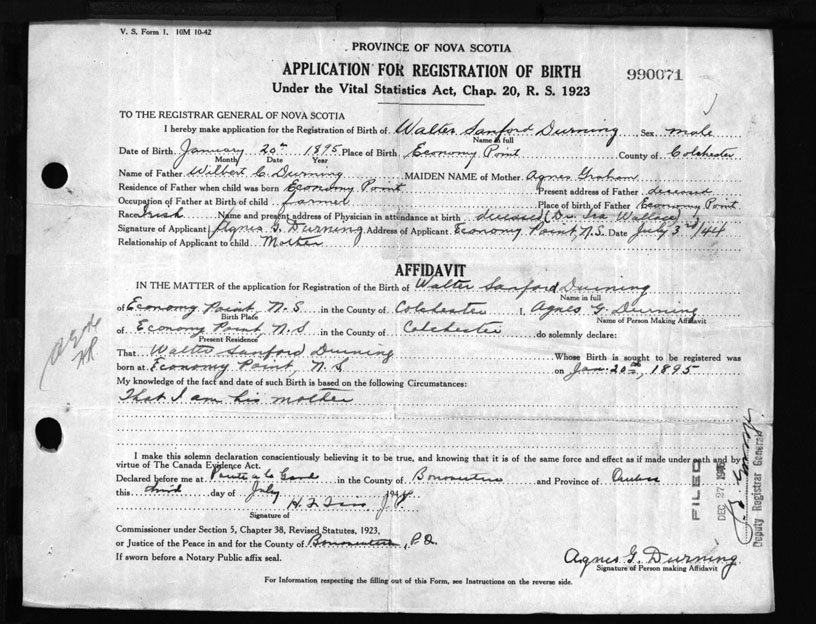 V. S. Form 1. 10M 10-42
PROVINCE OF NOVA SCOTIA
APPLICATION FOR REGISTRATION OF BIRTH
990071
Under the Vital Statistics Act, Chap. 20, R. S. 1923
TO THE REGISTRAR GENERAL OF NOVA SCOTIA
I hereby make application for the Registration of Birth of Walter Sanford Durning Sex male
Name in full
Date of Birth January 20th 1895 Place of Birth Economy Point County of Colchester
Month Date Year
Name of Father Wilbert C. Durning MAIDEN NAME of Mother Agnes Graham
Residence of Father when child was born Economy Point Present address of Father deceased
Occupation of Father at Birth of child farmer Place of birth of Father Economy Point
Race Irish Name and present address of Physician in attendance at birth deceased (Dr. Ira Wallace)
Signature of Applicant Agnes G. Durning Address of Applicant Economy Point, N.S. Date July 3rd/44
Relationship of Applicant to child Mother
AFFIDAVIT
IN THE MATTER of the application for Registration of the Birth of Walter Sanford Durning
Name in full
of Economy Point N.S in the County of Colchester I, Agnes G. Durning
Birth Place Name of Person Making Affidavit
of Economy Point N.S in the County of Colchester do solemnly declare:
Present Residence
That Walter Sanford Durning Whose Birth is sought to be registered was
born at Economy Point, N.S on Jan. 20th, 1895
My knowledge of the fact and date of such Birth is based on the following Circumstances:
That I am his mother
I make this solemn declaration conscientiously believing it to be true, and knowing that it is of the same force and effect as if made under oath and by
virtue of The Canada Evidence Act.
Declared before me at Pointe a la Garde in the County of Bonaventure and Province of Quebec
this third day of July 194
J.P.
Signature of
Commissioner under Section 5, Chapter 38, Revised Statutes, 1923,
or Justice of the Peace in and for the County of Bonaventure, P.Q.
If sworn before a Notary Public affix seal.
Agnes G. Durning
Signature of Person making Affidavit
For Information respecting the filling out of this Form, see Instructions on the reverse side.
FILED
DEC 27
Deputy Registrar General